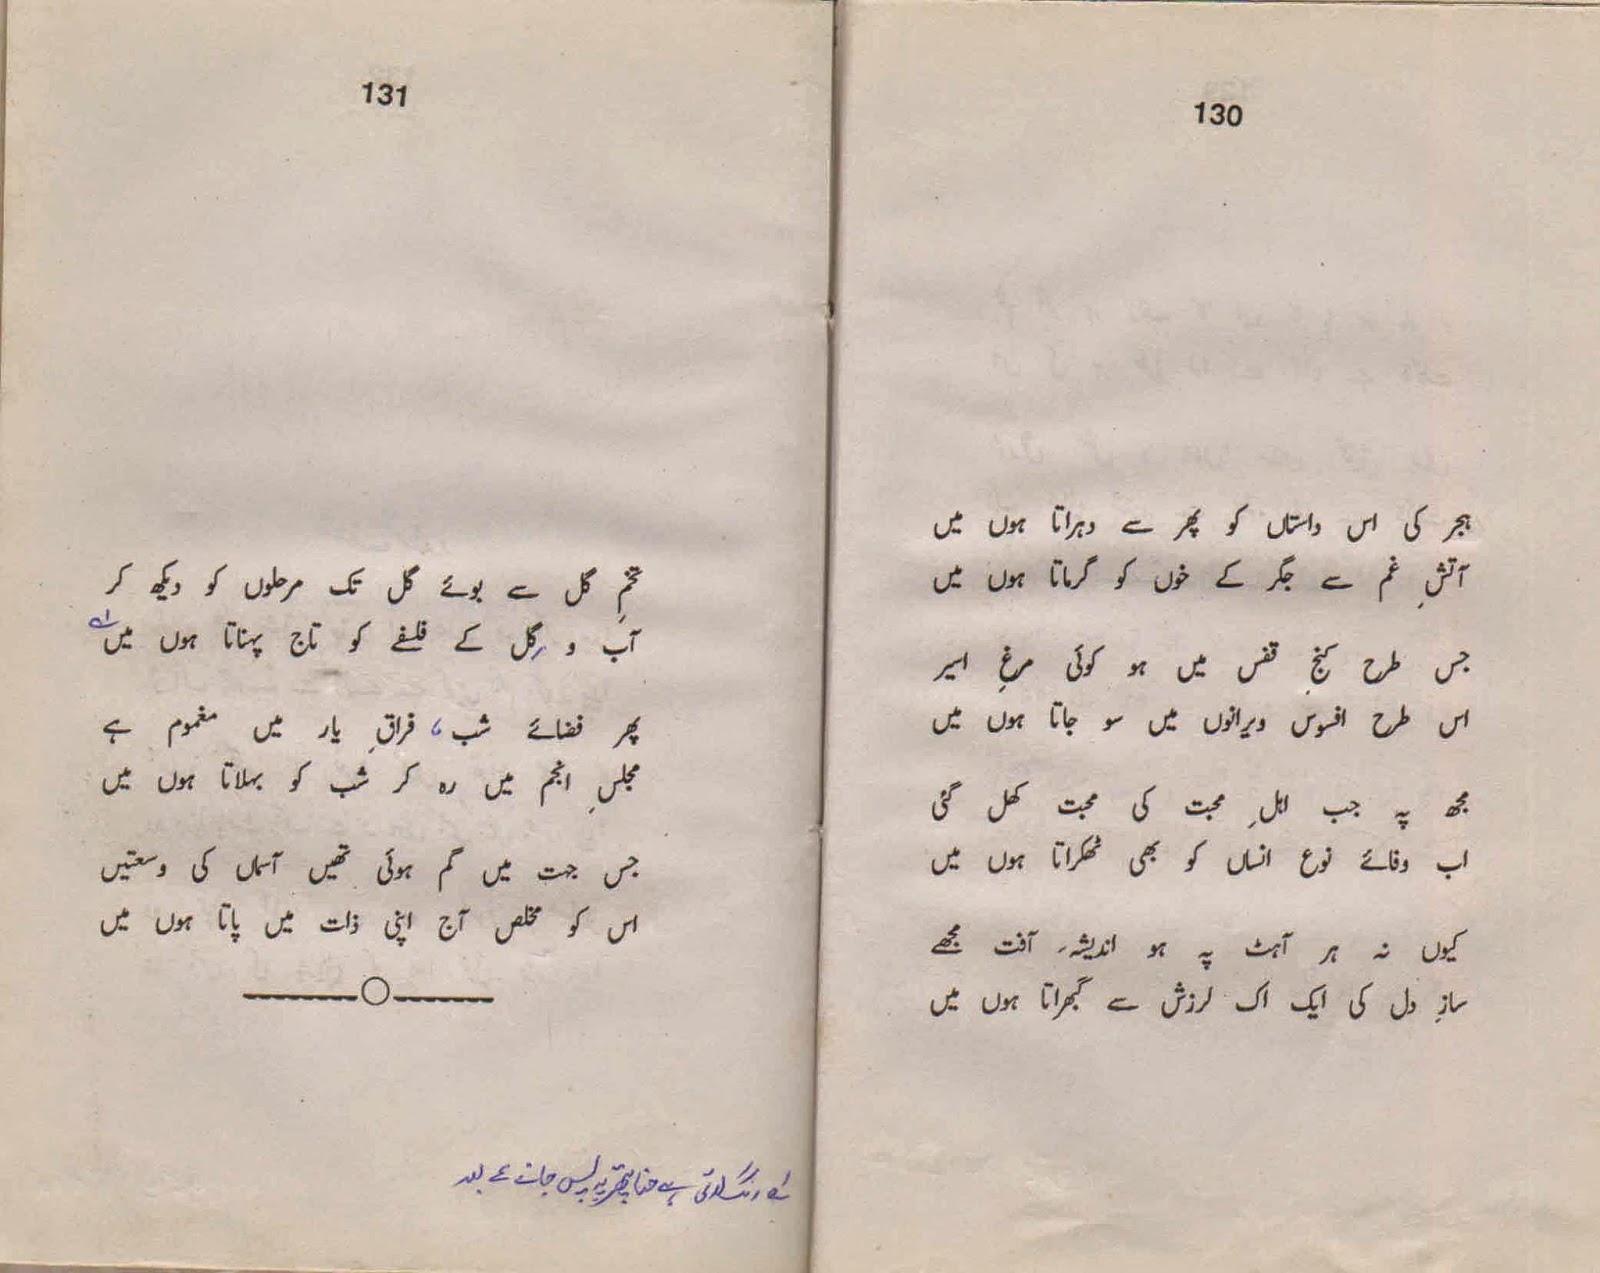 130
ہجر کی اس داستاں کو پھر سے دہراتا ہوں میں
آتشِ غم سے جگر کے خوں کو گرماتا ہوں میں
جس طرح کنجِ قفس میں ہو کوئی مرغِ اسیر
اس طرح افسوس ویرانوں میں سو جاتا ہوں میں
مجھ پہ جب اہلِ محبت کی محبت کھل گئی
اب وفائے نوع انساں کو بھی ٹھکراتا ہوں میں
کیوں نہ ہر آہٹ پہ ہو اندیشہء آفت مجھے
سازِ دل کی ایک اک لرزش سے گھبراتا ہوں میں
131
تخمِ گل سے بوئے گل تک مرحلوں کو دیکھ کر
آب و گِل کے فلسفے کو تاج پہناتا ہوں میں
پھر فضائے شب، فراقِ یار میں مغموم ہے
مجلسِ انجم میں رہ کر شب کو بہلاتا ہوں میں
جس جہت میں گم ہوئی تھیں آسماں کی وسعتیں
اس کو مخلص آج اپنی ذات میں پاتا ہوں میں
رنگ لاتی ہے حنا پتھر پہ پس جانے کے بعد